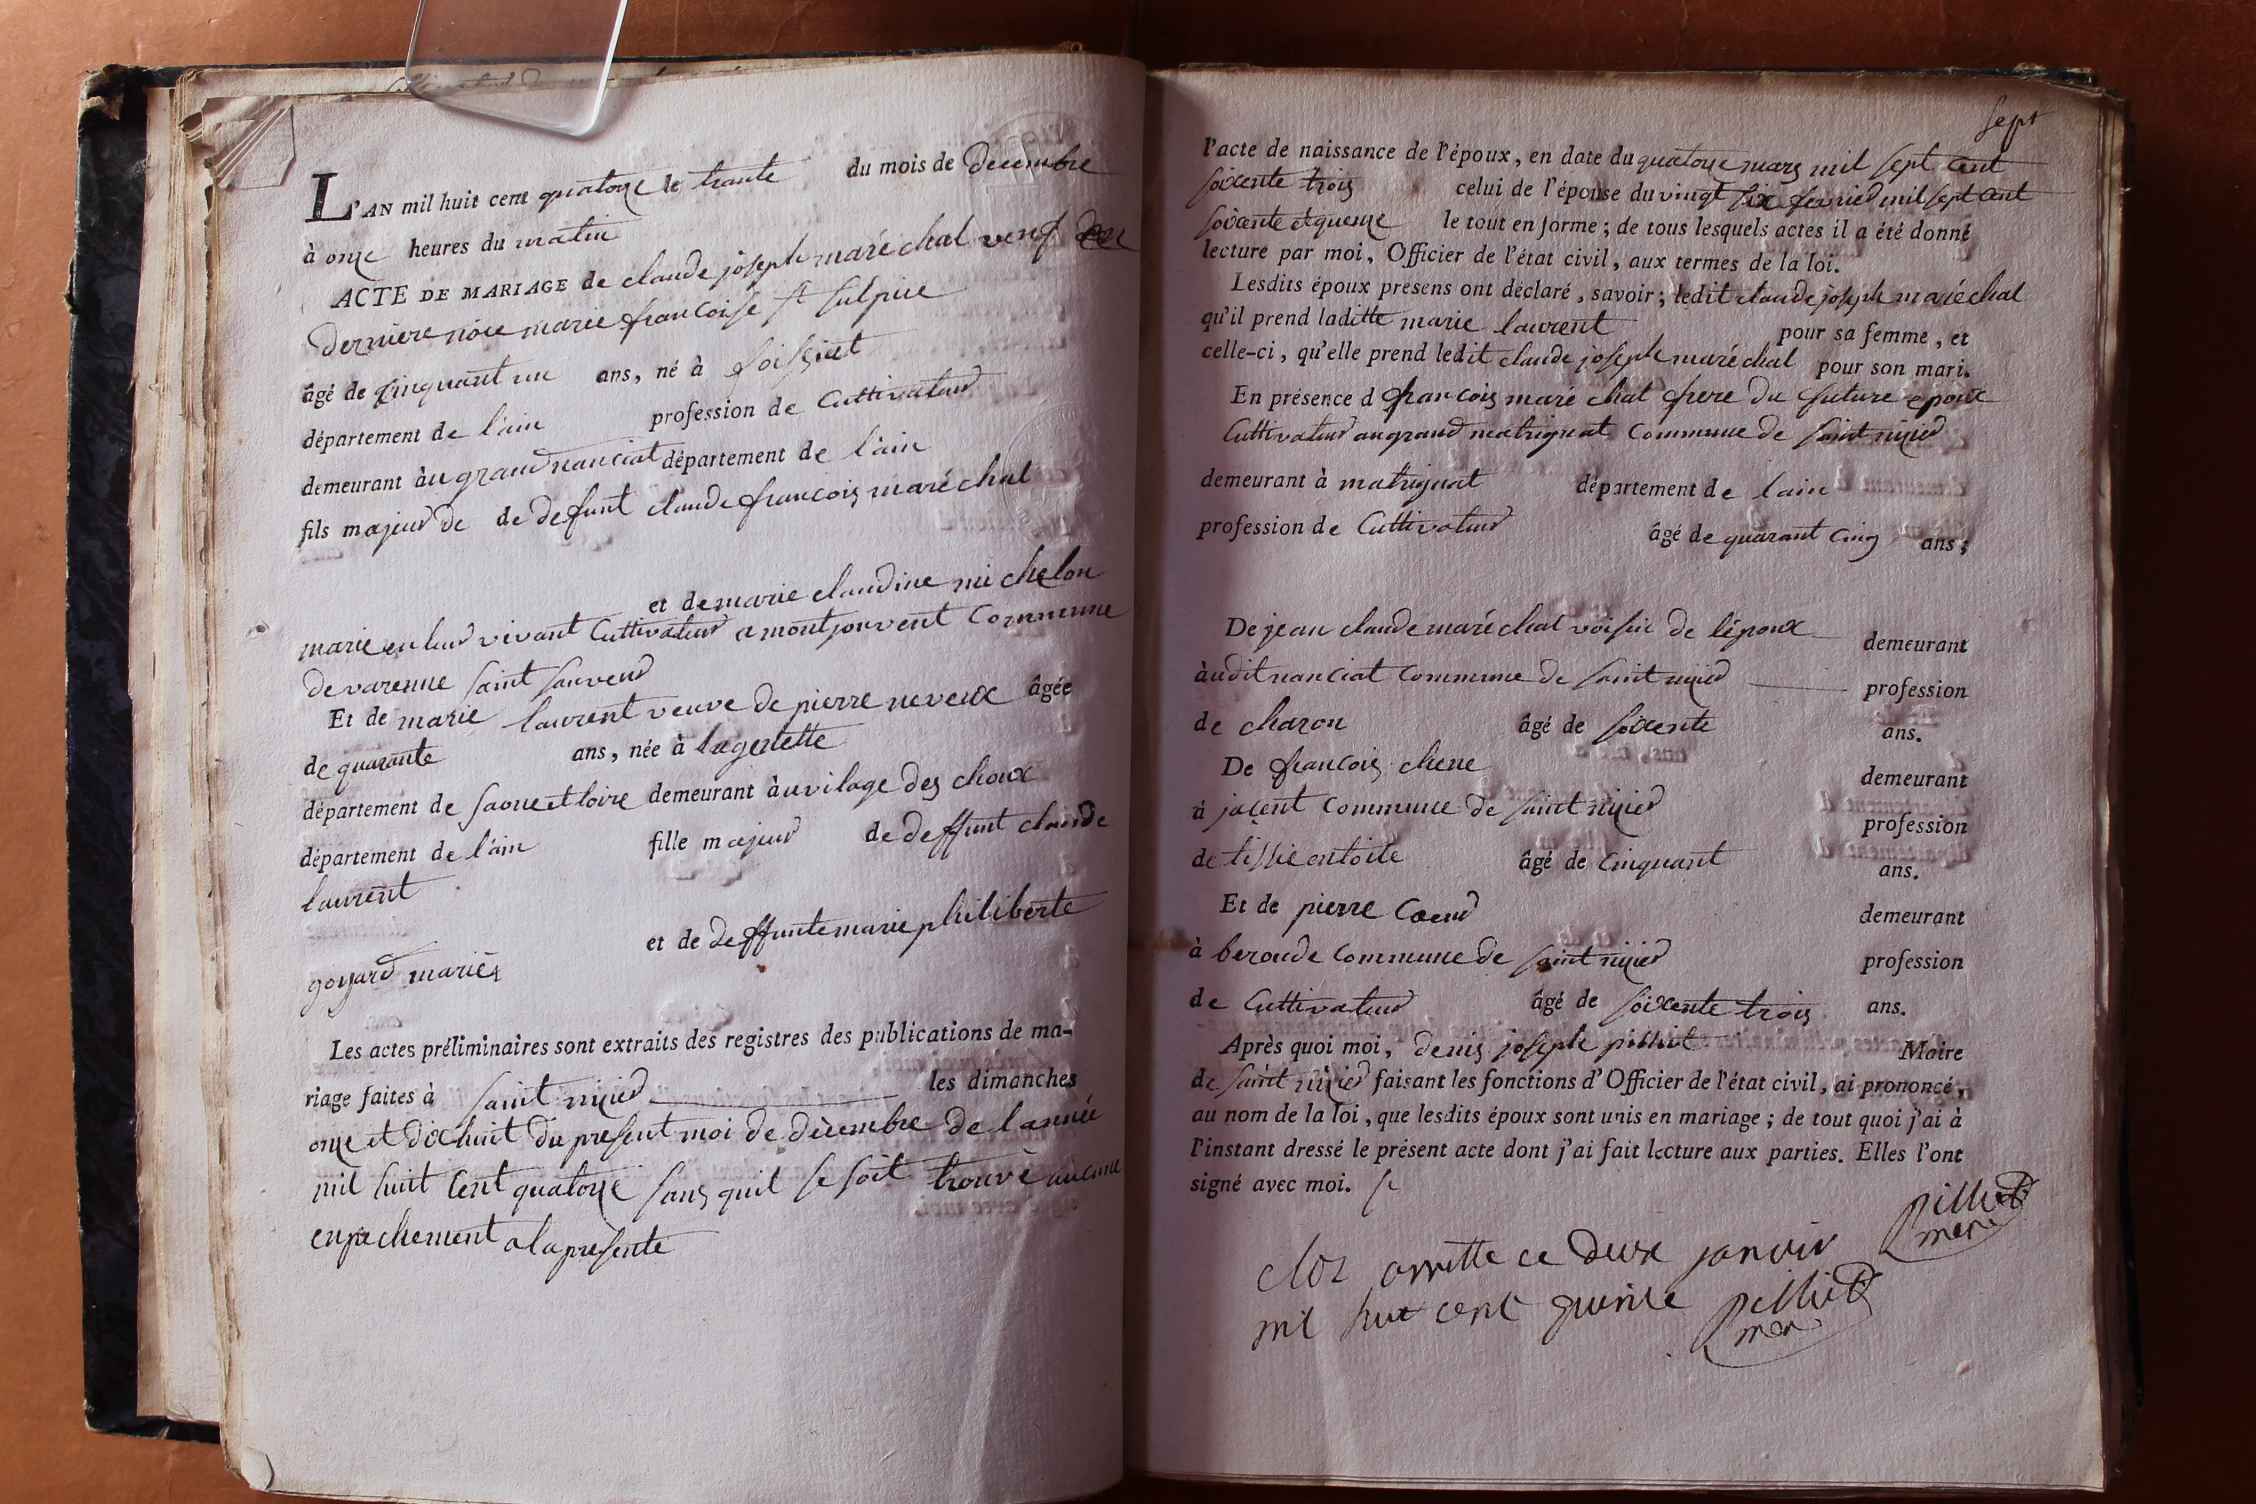 L'AN mil huit cent quatorze le trante du mois de decembre
à onze heures du matin
ACTE DE MARIAGE de claude joseph maréchal veuf de
derniere noce marie francoise st sulpice
âgé de cinquant un ans, né à foissiat
département de l'ain profession de Cultivateur
demeurant àu grand nanciat département de l'ain
fils majeur de de defunt claude francois maréchal
et de marie claudine michelon
marie en leur vivant Cultivateur a montjouvent Commune
de varenne saint sauveur
Et de marie laurent veuve de pierre neveux âgée
de quarante ans, née à lagenette
département de saone et loire demeurant àu vilage des choux
département de l'ain fille majeur de deffunt claude
laurent
et de deffunte marie philiberte
goyard mariés
Les actes préliminaires sont extraits des registres des publications de ma-
riage faites à saint nizier les dimanches
onze et dixhuit du present moi de dècembre de l'année
mil huit cent quatorze sans quil se soit trouvé aucune
enpechement a la presente
sept
l'acte de naissance de l'époux, en date du quatorze mars mil sept cent
soixente trois celui de l'épouse du vingt six fevrier mil sept cent
soixente et quenze le tout en forme ; de tous lesquels actes il a été donné
lecture par moi, Officier de l'état civil, aux termes de la loi.
Lesdits époux présens ont déclaré, savoir ; ledit claude joseph maréchal
qu'il prend laditte marie laurent pour sa femme, et
celle-ci, qu'elle prend ledit claude joseph maréchal pour son mari.
En présence d francois maréchal frere du future epoux
Cultivateur au grand matrignat Commune de saint nizier
demeurant à matrignat département de l'ain
profession de Cultivateur âgé de quarant cinq ans ;
De jean claude maréchal voisin de l'époux demeurant
àudit nanciat commune de saint nizier profession
de charon âgé de soixente ans.
De francois chene demeurant
à jacent commune de saint nizier profession
de tissie en toile âgé de cinquant ans.
Et de pierre Cœur demeurant
à beroude commune de saint nizier profession
de Cultivateur âgé de soixente trois ans.
Après quoi moi, denis joseph pilliat Maire
de saint nizier faisant les fonctions d'Officier de l'état civil, ai prononcé,
au nom de la loi, que lesdits époux sont unis en mariage ; de tout quoi j'ai à
l'instant dressé le présent acte dont j'ai fait lecture aux parties. Elles l'ont
signé avec moi.
pilliat
mere
clos arrette ce deux janvier
mil huit cent quinse pilliat
mere